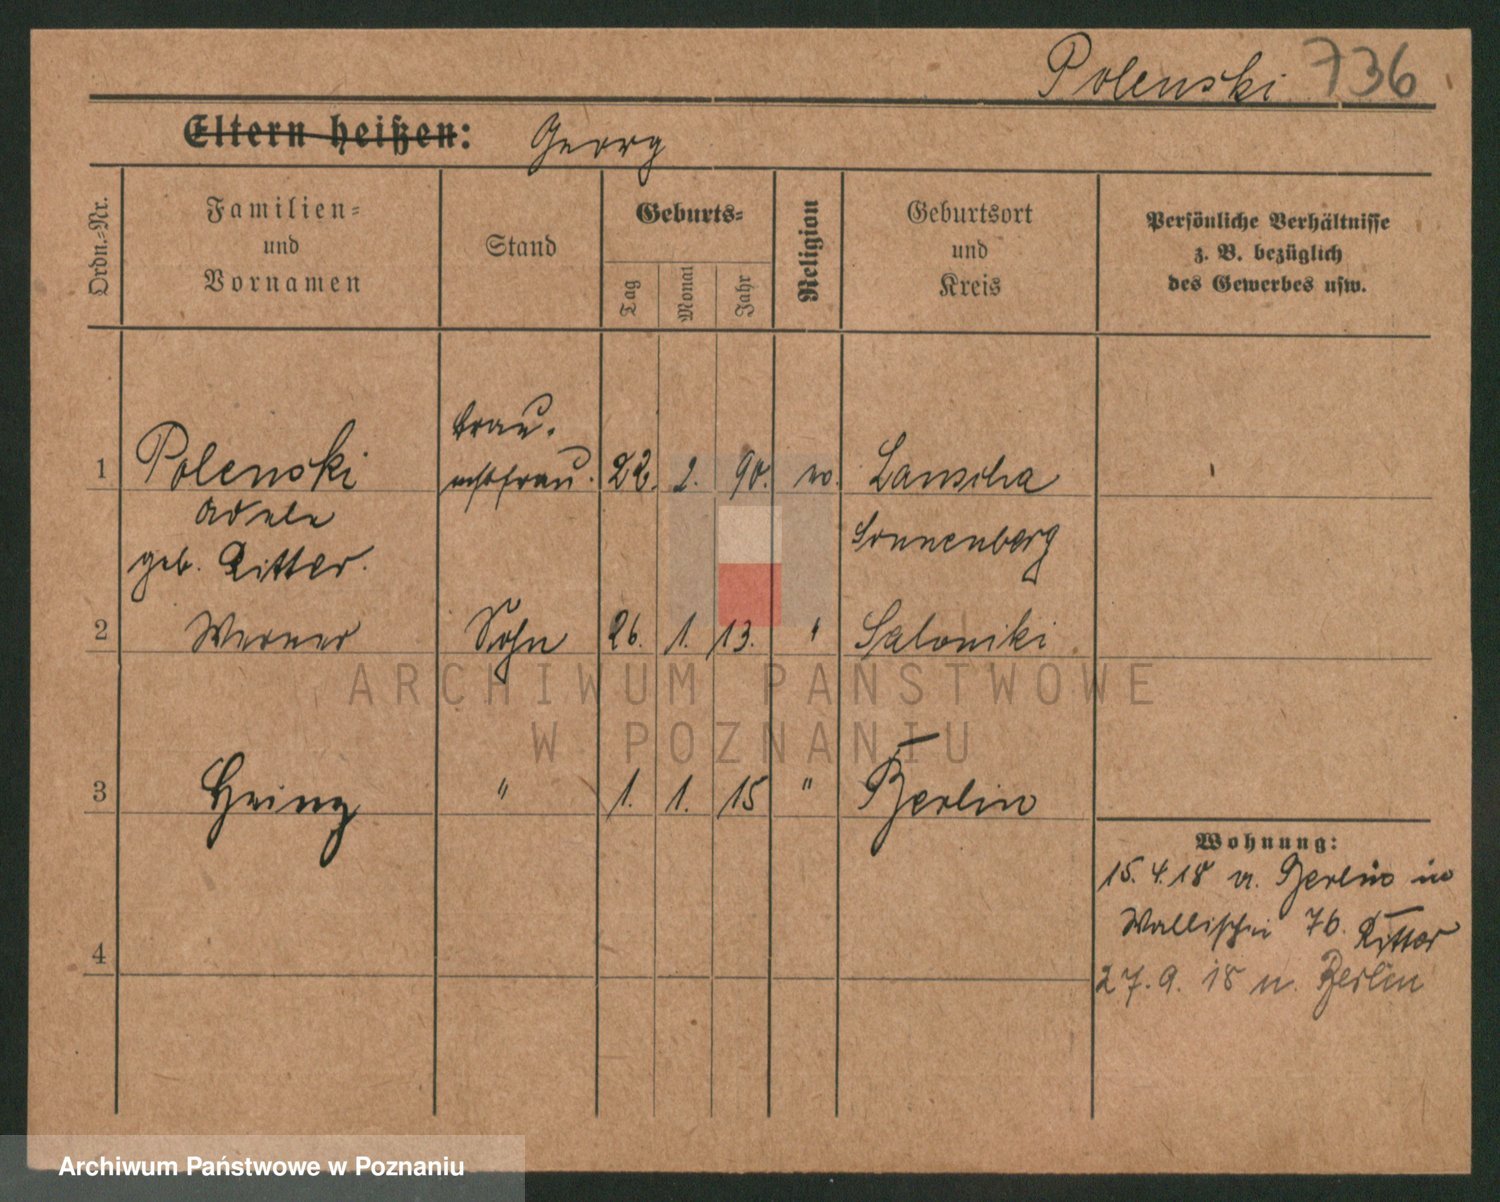 Polenski 736
Eltern heißen: Georg
Ordn.-Nr.
Familien-
und
Vornamen
Stand
Geburts-
Tag
Monat
Jahr
Religion
Geburtsort
und
Kreis
Persönliche Verhältnisse
z. B. bezüglich
des Gewerbes usw.
frau.
1 Polenski 22. 2. 90. Lauscha
Adele
geb. Ritter.
Sonnenberg
2 Werner Sohn 26. 1. 13. " Saloniki
3 Heinz " 1. 1. 15 " Berlin
4
Wohnung:
15. 4. 18 v. Berlin in
Wallischei 76. Ritter
27. 9. 18 n. Berlin
ARCHIWUM PAŃSTWOWE
W POZNANIU
Archiwum Państwowe w Poznaniu